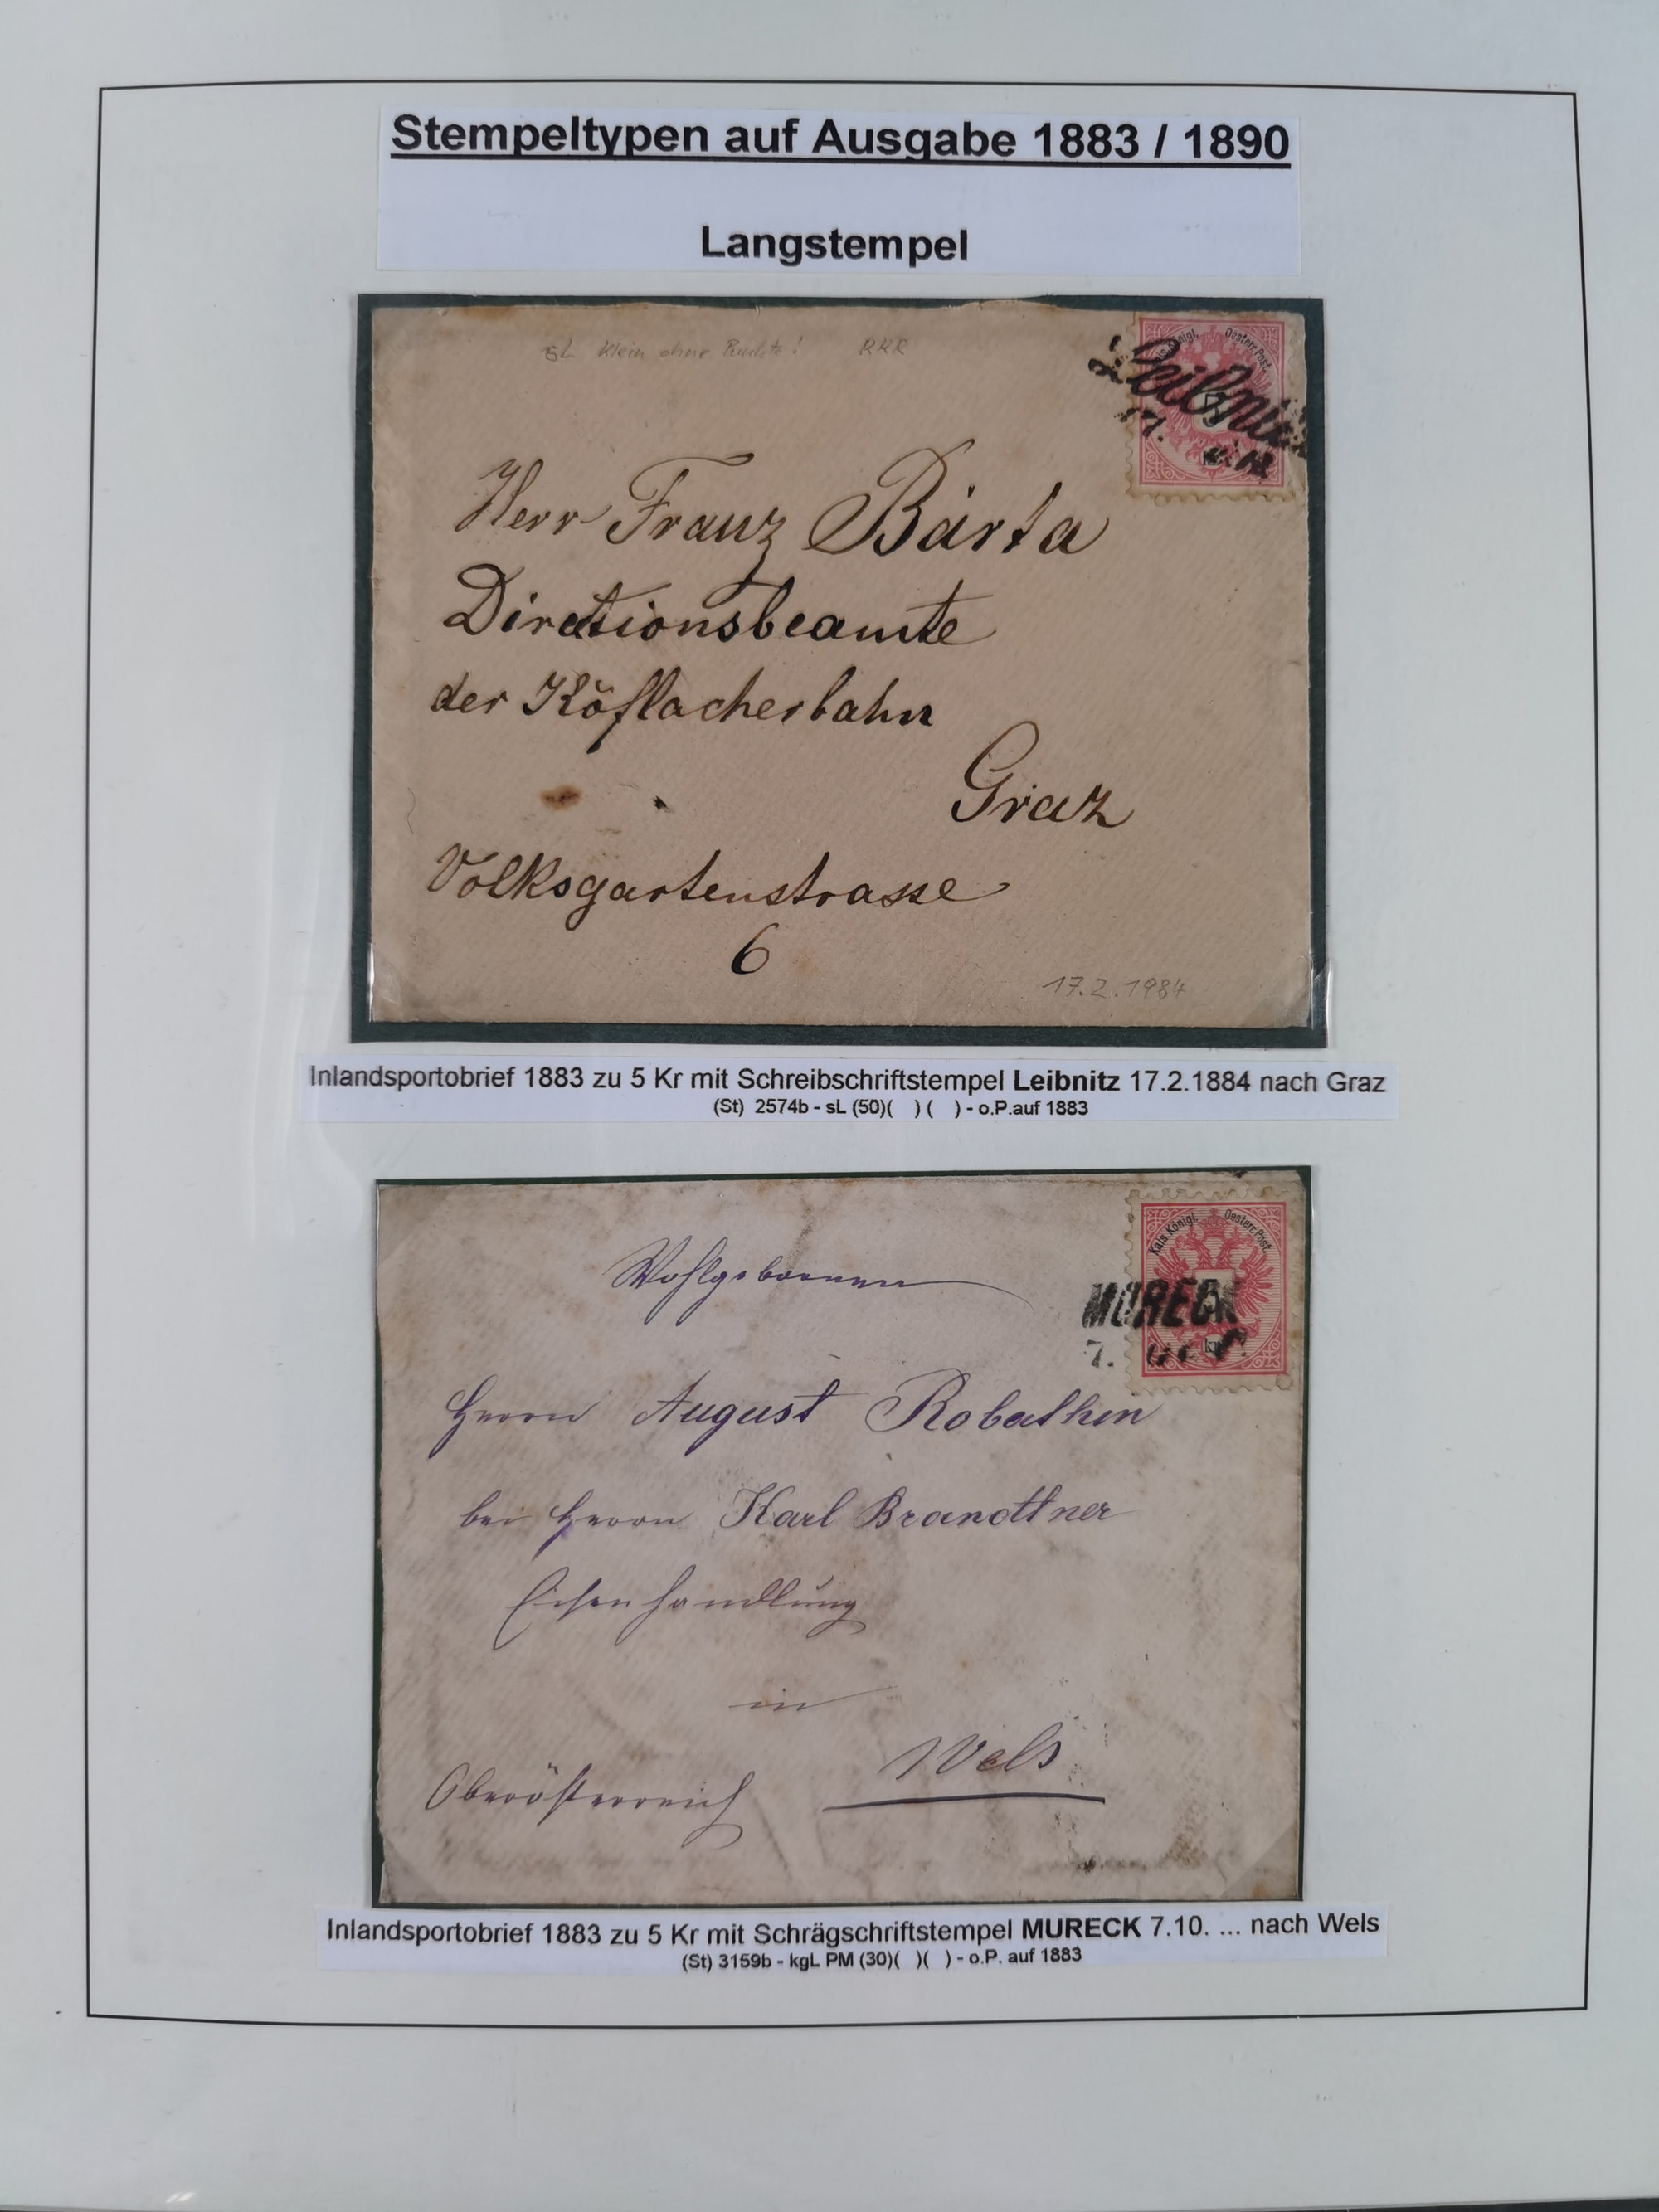 Stempeltypen auf Ausgabe 1883 / 1890
Langstempel
sL klein ohne Punkte! RRR
Kais. Königl. Oesterr. Post.
Leibnitz
17.
Herr Franz Bárta
Directionsbeamte
der Köflacherbahn
Graz
Volksgartenstrasse
6
17.2.1984
Inlandsportobrief 1883 zu 5 Kr mit Schreibschriftstempel Leibnitz 17.2.1884 nach Graz
(St) 2574b - sL (50)( ) ( ) - o.P.auf 1883
Kais. Königl. Oesterr. Post.
MURECK
7.
kr
Wohlgeboren
Herrn August Robathin
bei Herrn Karl Brandtner
Eisenhandlung
in
Wels
Oberösterreich
Inlandsportobrief 1883 zu 5 Kr mit Schrägschriftstempel MURECK 7.10. ... nach Wels
(St) 3159b - kgL PM (30)( )( ) - o.P. auf 1883